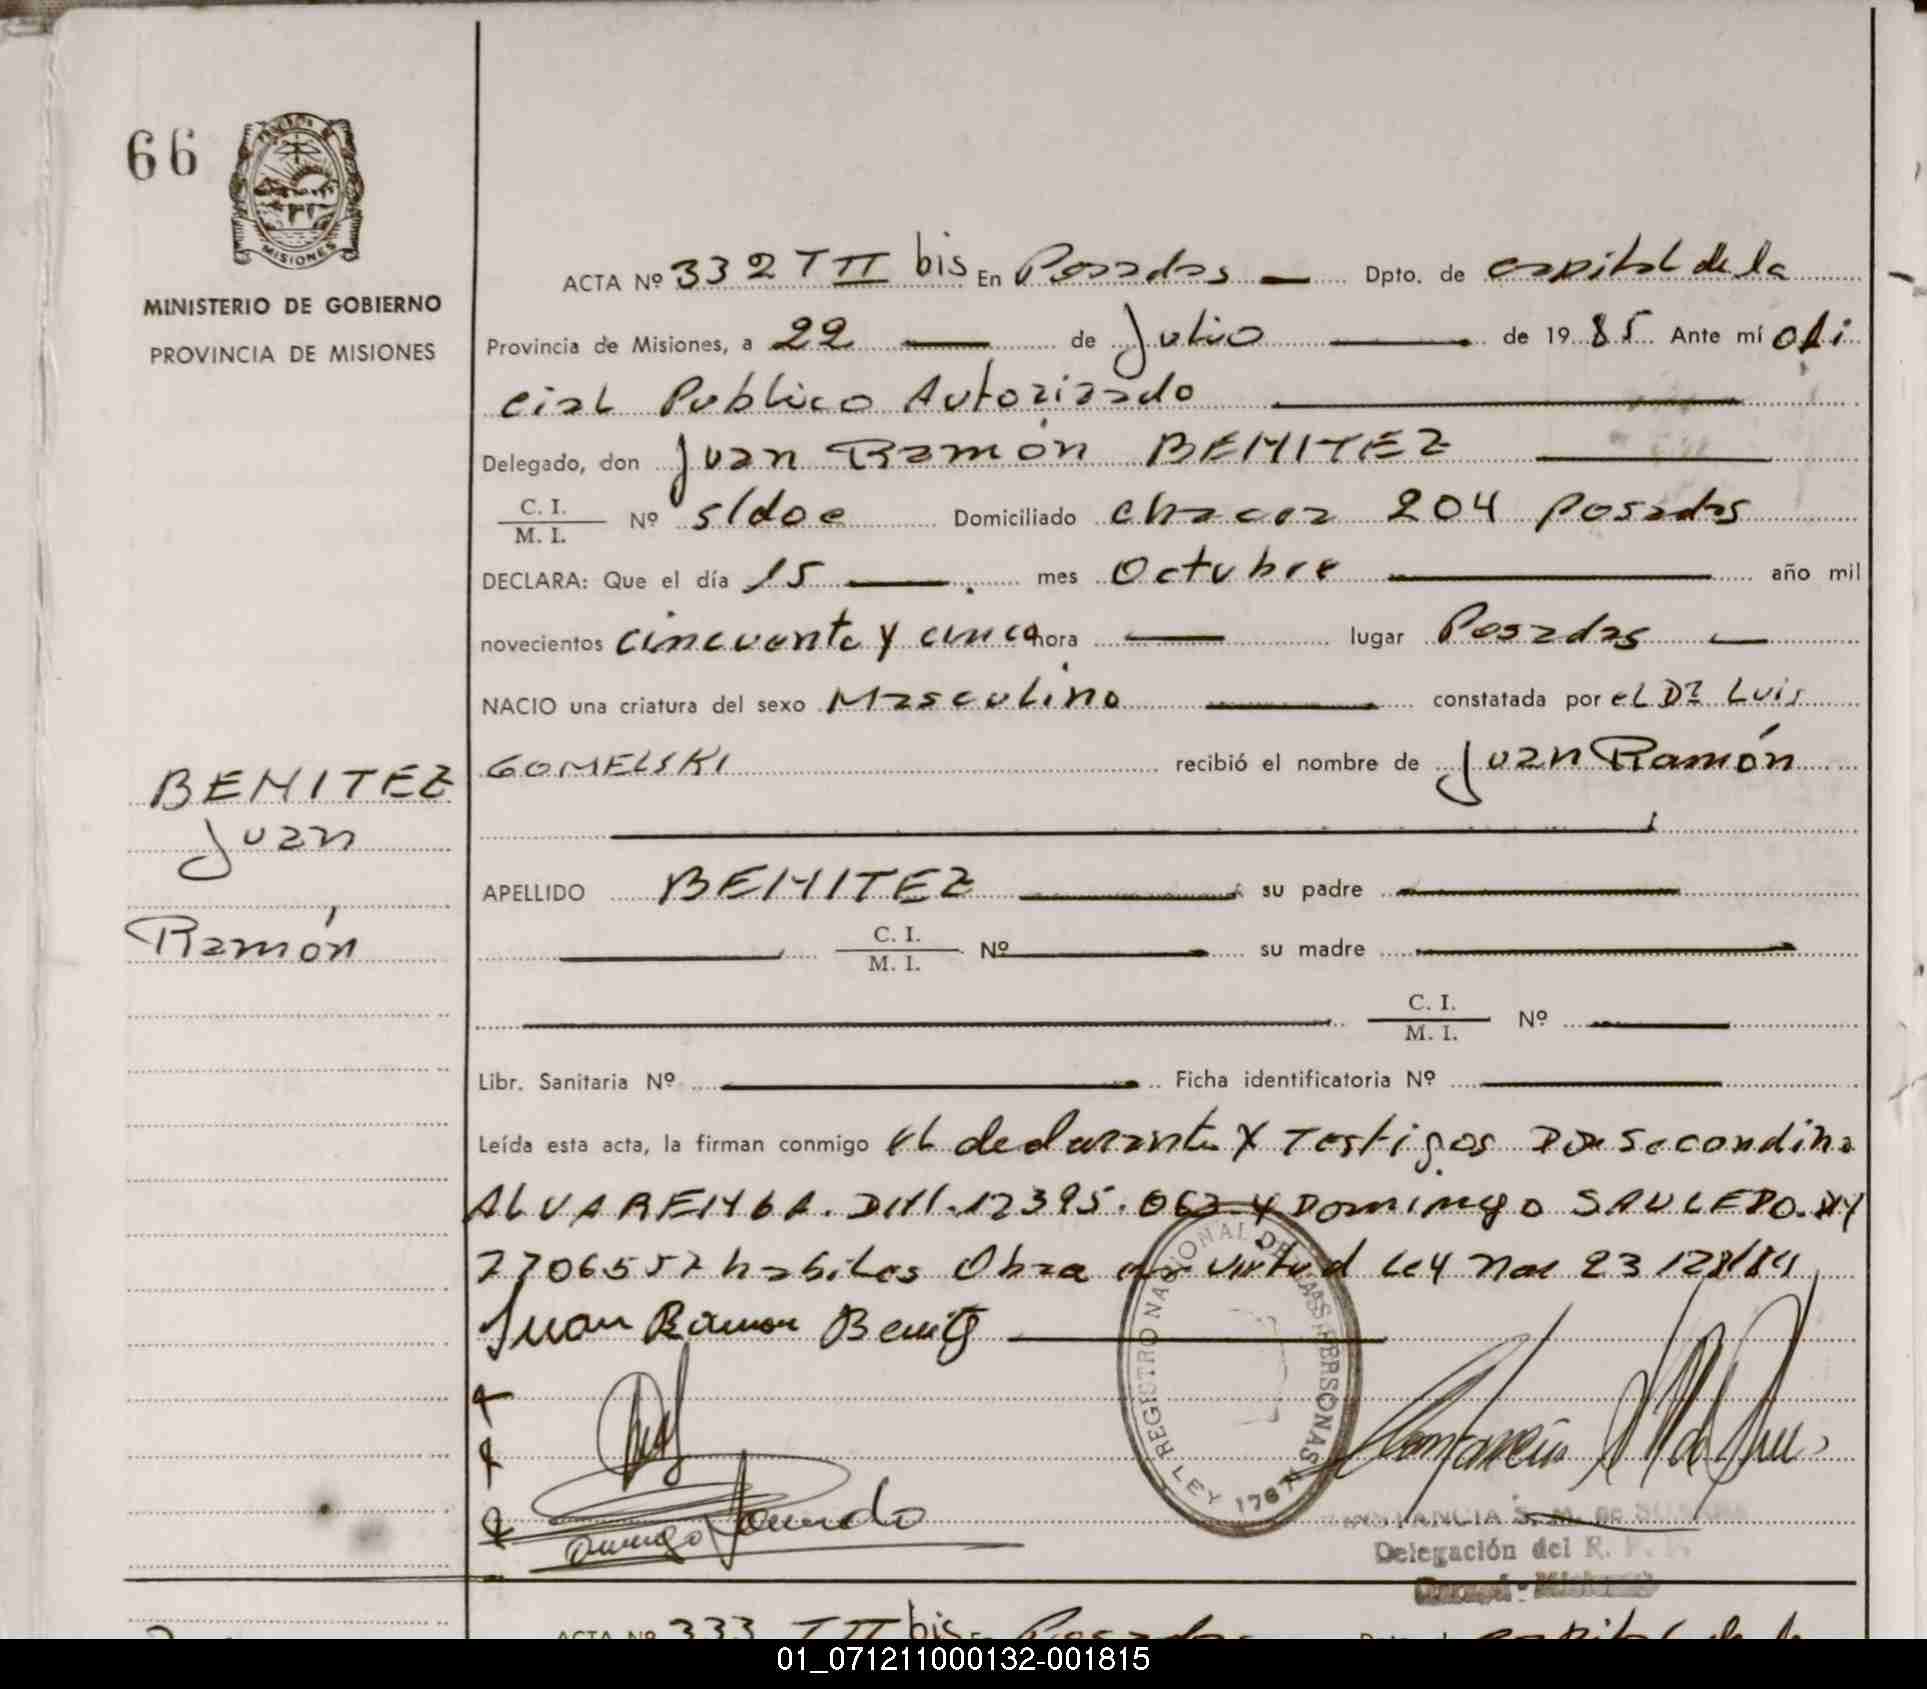 66
MISIONES
MINISTERIO DE GOBIERNO
PROVINCIA DE MISIONES
BENITEZ
Juan
Ramón
ACTA Nº 332 T II bis En Posadas — Dpto. de capital de la
Provincia de Misiones, a 22 — de Julio — de 1985 Ante mí ofi
cial Publico Autorizado —
Delegado, don Juan Ramón BENITEZ —
C. I.
M. I. Nº s/doc Domiciliado chacra 204 Posadas
DECLARA: Que el día 15 — mes Octubre — año mil
novecientos cincuenta y cinco hora — lugar Posadas —
NACIO una criatura del sexo Masculino — constatada por el Dr Luis
GOMELSKI recibió el nombre de Juan Ramón
APELLIDO BENITEZ — su padre —
— C. I.
M. I. Nº — su madre —
— C. I.
M. I. Nº —
Libr. Sanitaria Nº — Ficha identificatoria Nº —
Leída esta acta, la firman conmigo el declarante y Testigos Secondina
ALVARENGA. DNI. 12395.062 y Domingo SAUCEDO.
7706557 habiles Obra en virtud Ley Nac 23128/84
Juan Ramon Benitez —
REGISTRO NACIONAL DE LAS PERSONAS
LEY 17671
Domingo Saucedo
CONSTANCIA S. M. de
Delegación del R. P. P.
ACTA Nº 333 T II bis En Posadas Dpto. de capital de la
01_071211000132-001815